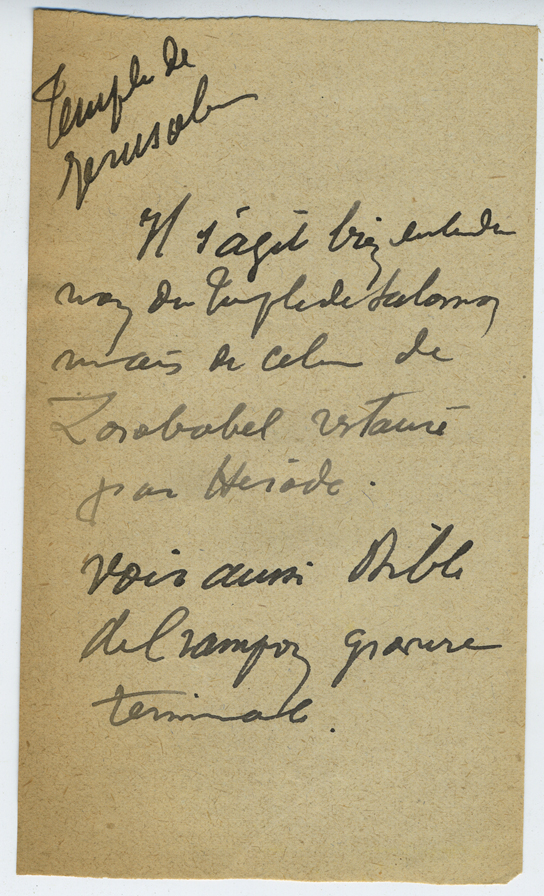 Temple de
Jerusalem
Il s'agit bien entendu
non du Temple de Salomon
mais de celui de
Zorobabel restauré
par Hérode.
Voir aussi Bible
de Crampon gravure
terminale.